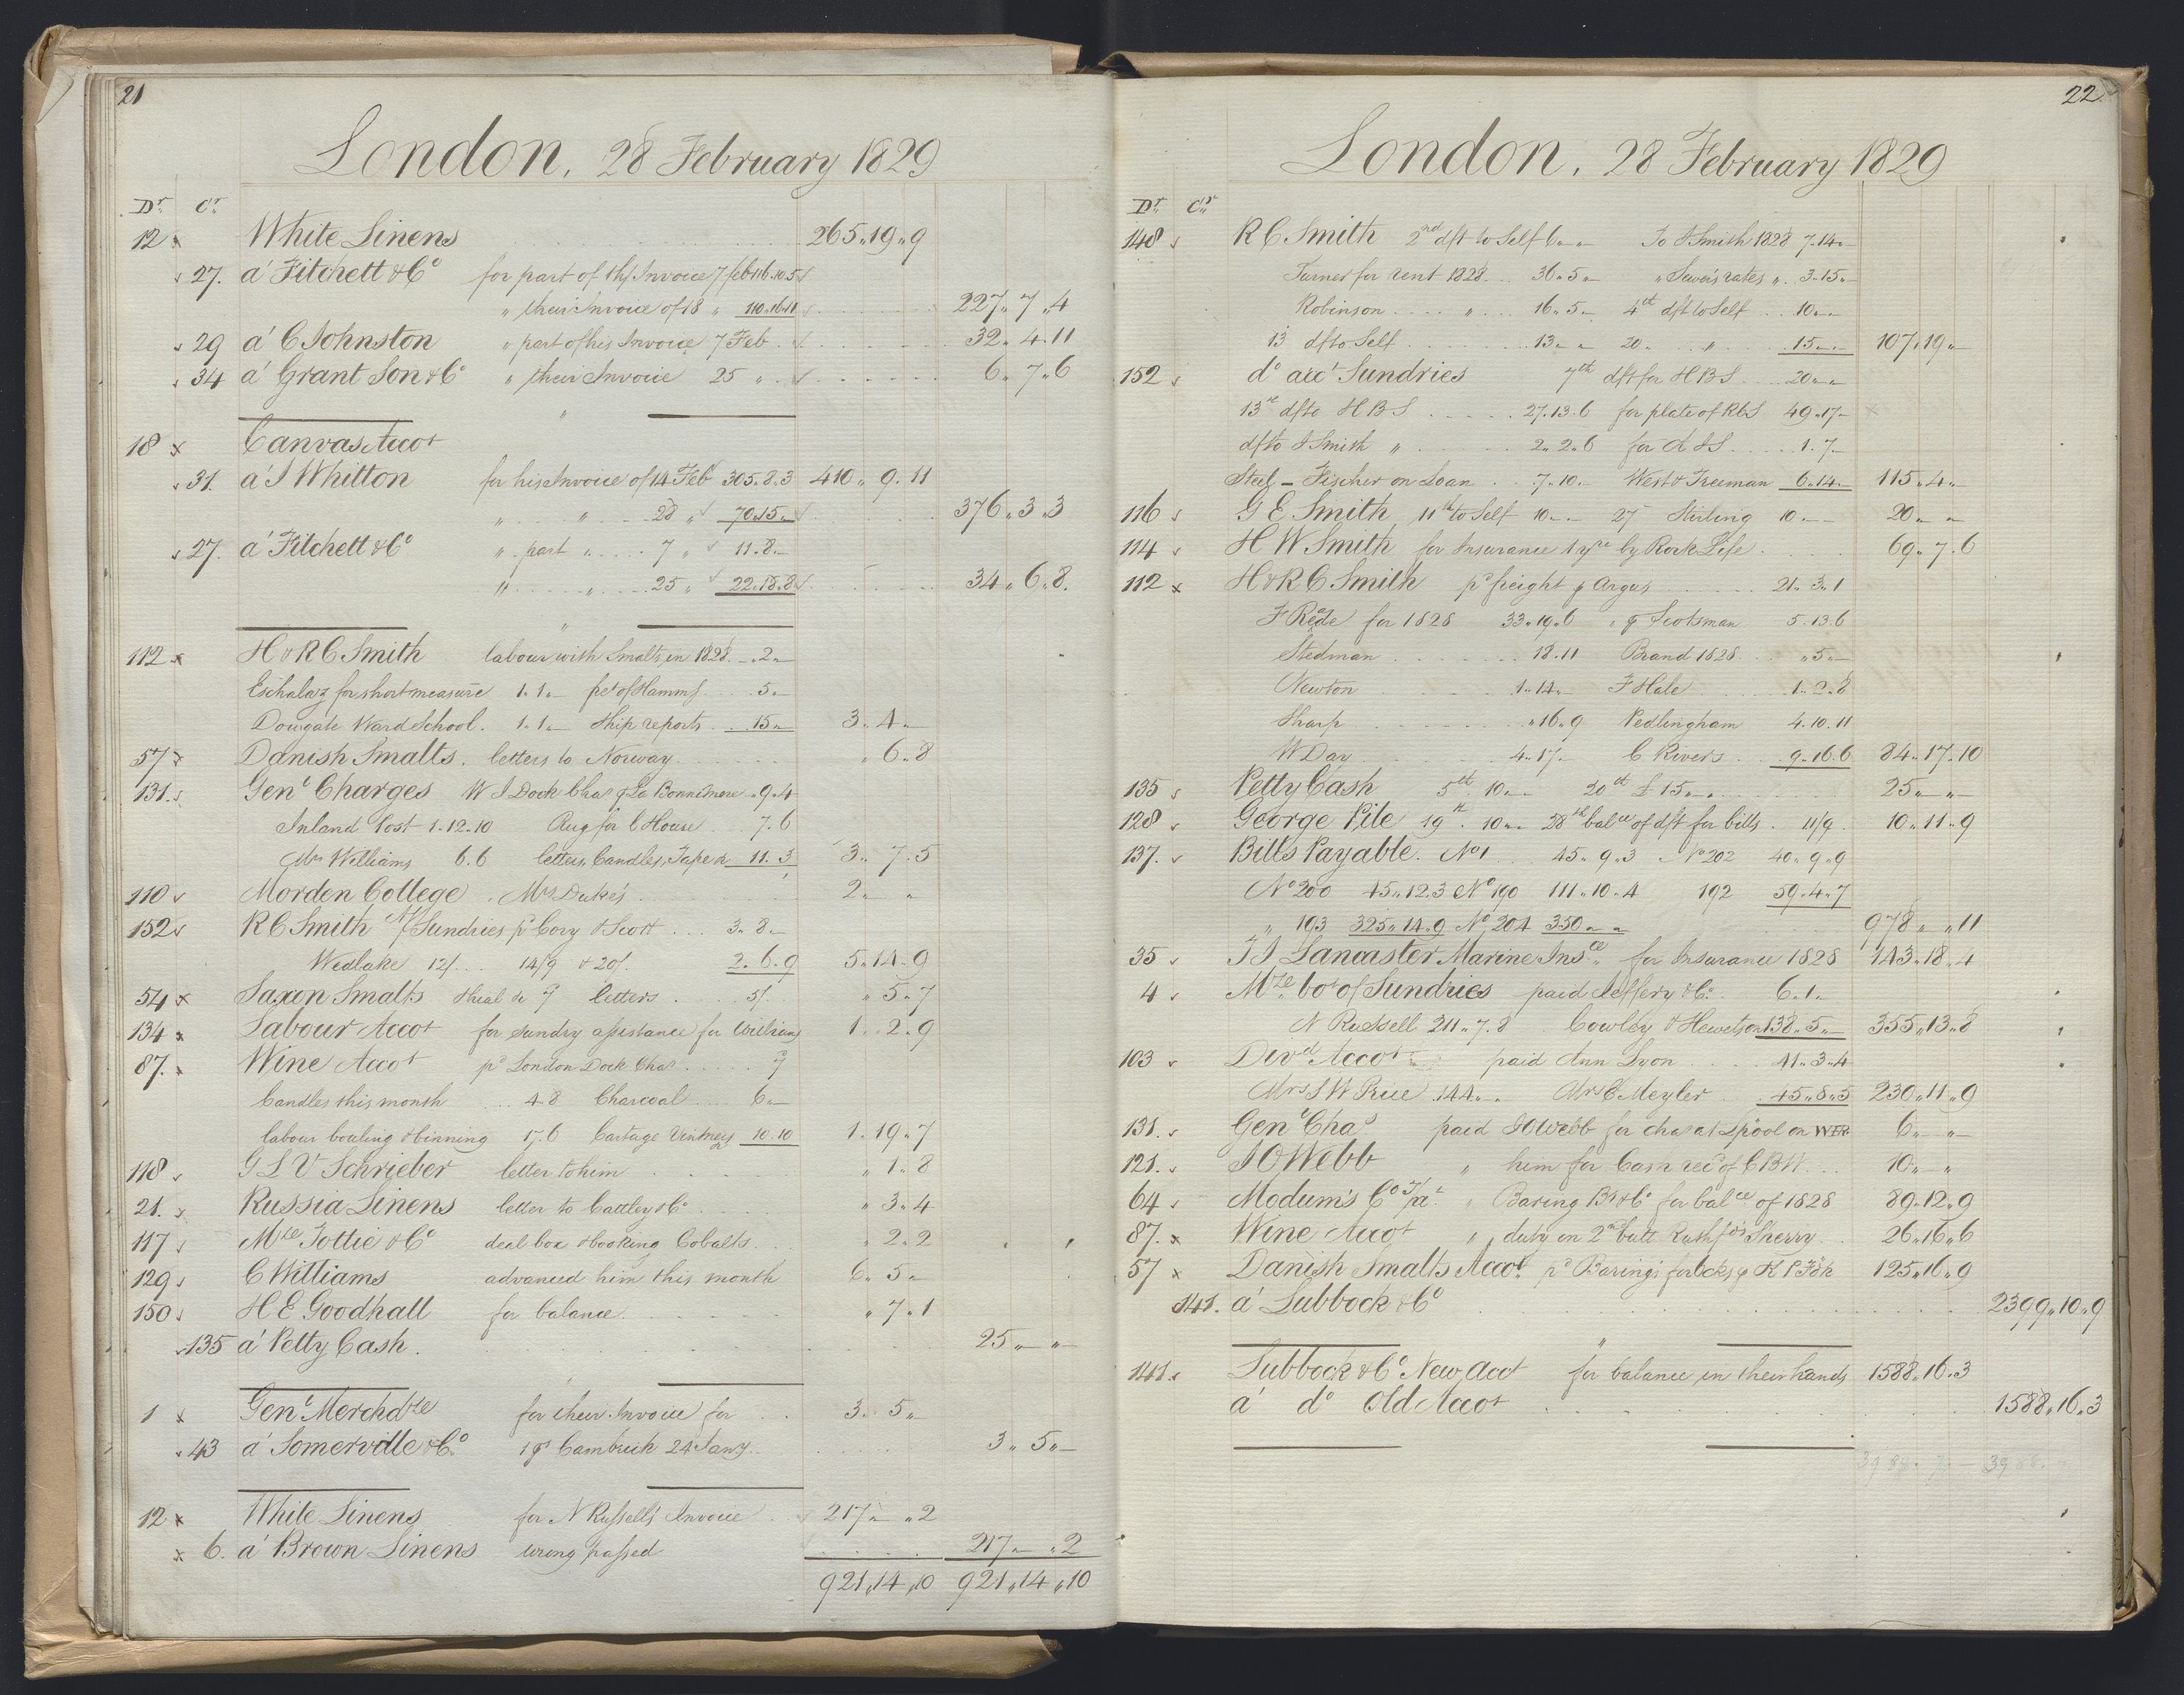 21
London, 28 February 1829
Dr. Cr.
12 x White Linens 265 „ 19 „ 9
27. a' Fitchett & Co for part of thr Invoice 7 feb 116.10.5
„ their Invoice of 18 „ 110.16.11 227 „ 7 „ 4
29 a' C Johnston „ part of his Invoice 7 Feb 32 „ 4 „ 11
34 a' Grant Son & Co „ their Invoice 25 „ 6 „ 7 „ 6
18 x Canvas Accot
31. a' J Whitton for his Invoice of 14 Feb 305.8.3 410 „ 9 . 11
„ „ 28 „ 70.15 „ 376 „ 3 „ 3
27. a' Fitchett & Co „ part „ 7 „ 11.8.—
„ „ 25 „ 22.18.8 34 „ 6 „ 8.
112 x H & R C Smith labour with Smalts, in 1828 . - „ 2 „ —
for short measure 1.1. — of Hamms 5 „ —
Dowgate Ward School. 1.1. — Ship reports 15 „ — 3 „ 4 „ —
57 x Danish Smalts. letters to Norway „ 6 „ 8
131. Genl Charges W I Dock Chas p La Bonne Mere „ 9.4
Inland Post 1.12.10 Rug for C House 7.6
Mrs Williams 6.6 letters, Candles, Tape &c 11.3 3 „ 7.5
110 Morden College . Mrs Dukes 2 „ — „
152 R C Smith A/ Sundries pd Cory & Scott 3 „ 8 „ —
Wedlake 12/. 14/9 & 20/. 2.6.9 5 „ 14 „ 9
54 x Saxon Smalts 7 letters 5/. „ 5 „ 7
134 x Labour Accot for sundry assistance for Williams 1 „ 2 „ 9
87. x Wine Accot pd London Dock Chas 7
Candles this month 4.8 Charcoal 6 „ —
labour bottling & binning 17.6 Cartage Vintners 10.10 1 „ 19 „ 7
118 G L V Schrieber letter to him „ 1 „ 8
21. x Russia Linens letter to Cattley & Co „ 3 „ 4
117 Mdze Tottie & Co deal box & booking Cobalts „ 2 „ 2
129 C Williams advanced him this month 6 „ 5 „ —
150 H E Goodhall for balance „ 7 „ 1
135 a' Petty Cash . 25 „ — „ —
1 x Genl Merchdze for their Invoice for 3 „ 5 „ —
43 a' Somerville & Co 1 ps Cambrick 24 Jany 3 „ 5 „ —
12 x White Linens for N Russell's Invoice 217 „ — „ 2
x 6. a' Brown Linens wrong passed 217 „ — „ 2
921 „ 14 „ 10 921 „ 14 „ 10
22
London, 28 February 1829
Dr. Cr.
148 R C Smith 2nd dft to Self 6 „ — „ To J Smith 1828 7.14 „ —
Turner for rent 1828 36 „ 5 „ — „ Sewers rates „ 3.15 „ —
Robinson „ 16 „ 5 „ — 4th dft to Self 10 „ — „
13 dft to Self 13 „ — „ 20 „ „ 15 „ — „ 107 „ 19 „ —
152 do acct Sundries 7th dft for H B S 20 „ — „
13th dfto H B S 27.13.6 for plate of RCS 49.17 „ —
dfto J Smith „ 2 „ 2 „ 6 for A S S 1.7 „ —
Steel — Fischer on Loan 7.10 „ — West & Freeman 6.14 „ — 115 „ 4 „ —
116 G E Smith, 11th to Self 10 „ — „ 27 Stirling 10 „ — „ 20 „ — „ —
114 H W Smith for Insurance 1 yr by Rock Life 69 „ 7 „ 6
112 x H & R C Smith pd freight p Argus 21 „ 3 „ 1
F Reade for 1828 33.19.6 „ p Scotsman 5.13.6
Stedman 18.11 Brand 1828 „ 5 „ —
Newton 1.14 „ — F Hale 1 „ 2 „ 8
Sharp „ 16 „ 9 Pedlingham 4.10.11
W Day 4.17 „ — C Rivers 9.16.6 84 „ 17 „ 10
135 Petty Cash 5th 10 „ — „ 20th £15 „ — „ 25 „ — „ —
128 George Pile 19th. 10 „ — „ 28th balce of dft for bills 11/9 10 „ 11 „ 9
137. Bills Payable. No 1 45 „ 9 „ 3 No 202 40 „ 9 „ 9
No 200 45 „ 12.3 No 190 111 „ 10 „ 4 192 59 „ 4 „ 7
„ 193 325 „ 14 „ 9 No 204 350 „ — „ 978 „ „ 11
35 I J Lancaster Marine Insce for Insurance 1828 143 „ 18 „ 4
4 Mdze bot of Sundries paid Jeffery & Co 6.1 „ —
N Russell 211 „ 7 „ 8 Cowley & Hewetson 138 „ 5 „ — 355 „ 13 „ 8
103 Divd Accot paid Ann Lyon 41 „ 3 „ 4
Mrs S W Price 144 „ — „ Mrs C Meyler 45 „ 8 „ 5 230 „ 11 „ 9
131. Genl Chas paid J O Webb for chas at Lpool on WER 6 „ — „ —
121. J O Webb „ him for Cash recd of C B W 10 „ — „
64 Modum's Co „ Baring Brs & Co for balce of 1828 89 „ 12 „ 9
87. x Wine Accot „ duty on 2nd butt Rushfo's Sherry 26 „ 16 „ 6
57 x Danish Smalts Accot pd Barings for 125 „ 16 „ 9
141. a' Lubbock & Co 2399 „ 10 „ 9
141. Lubbock & Co New Acct for balance in their hands 1588 „ 16 „ 3
a' do Old Accot 1588 „ 16 „ 3